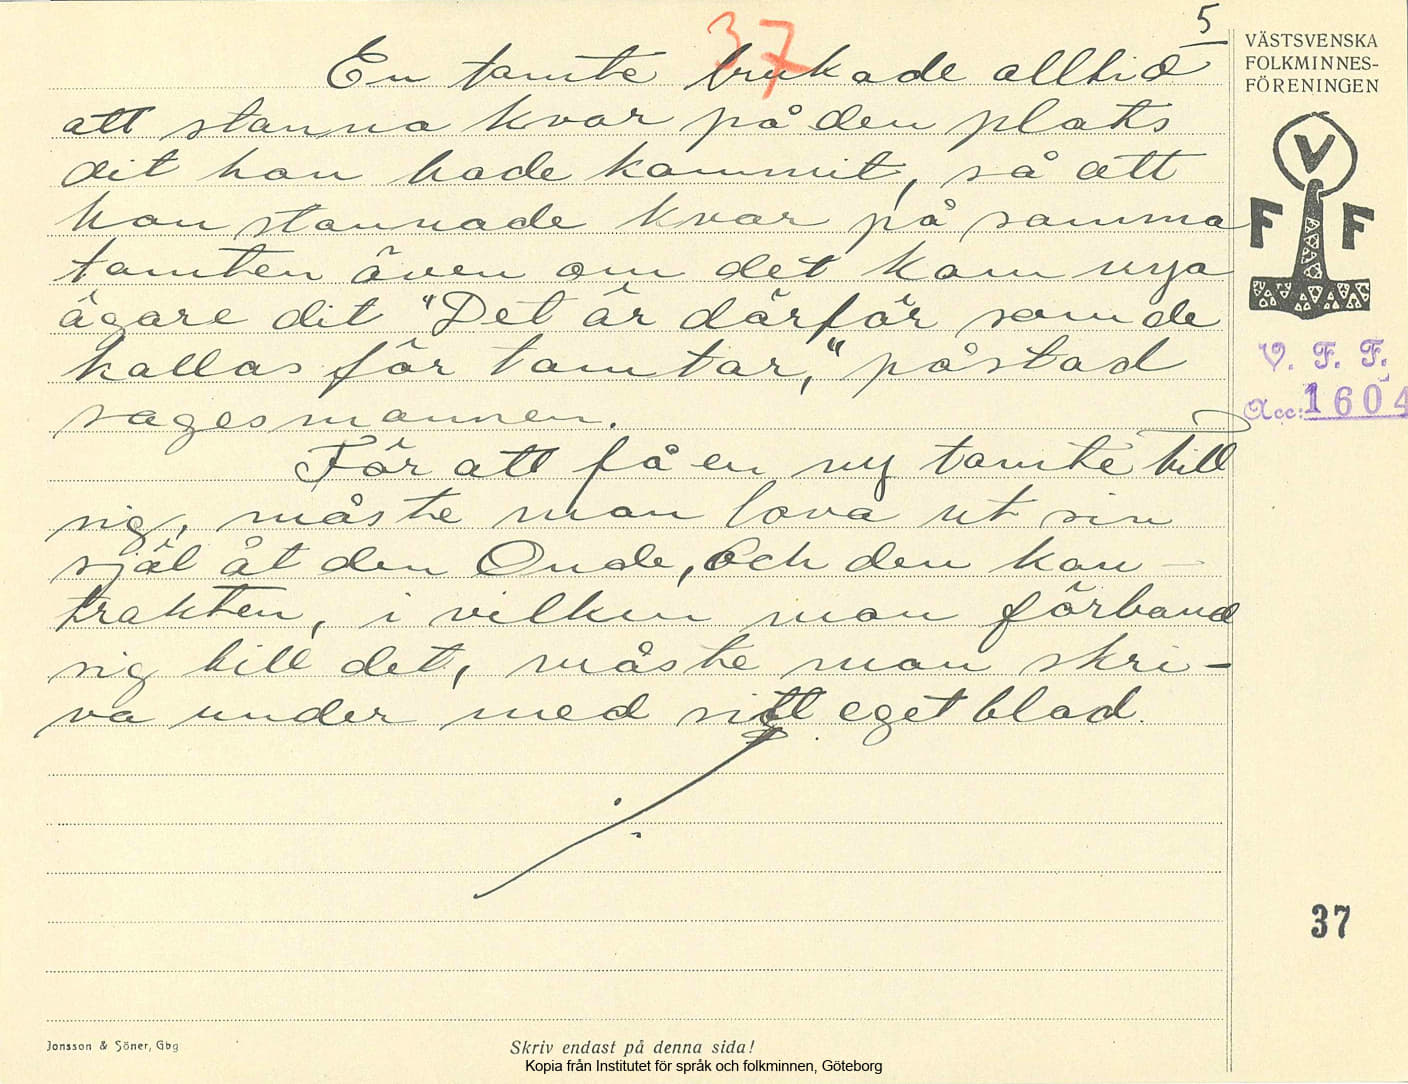 5
37
VÄSTSVENSKA
FOLKMINNES-
FÖRENINGEN
En tomte brukade alltid
att stanna kvar på den plats
dit han hade kommit, så att
han stannade kvar på samma
tomten även om det kom nya
ägare dit "Det är därför som de
kallas för tomtar," påstod
sagesmannen.
För att få en ny tomte till
sig, måste man lova ut sin
själ åt den Onde, och den kon-
trakten, i vilken man förband
sig till det, måste man skri-
va under med sitt eget blod.
V
F F
V. F. F.
Acc: 1604
37
Jonsson & Söner, Gbg
Skriv endast på denna sida!
Kopia från Institutet för språk och folkminnen, Göteborg